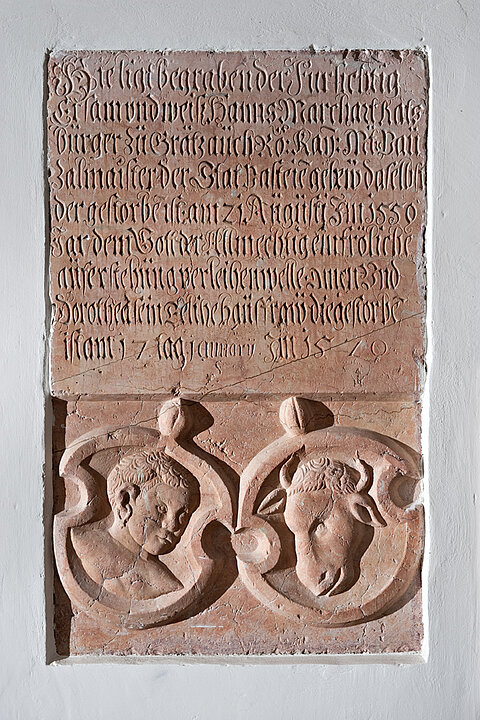 Hie ligt begraben der Fursichtig
Ersam und weiß Hanns Marchart Rats
bürger zü Grätz aüch Rö: Kay: Ma: Baü
Zalmaister der Stat Pasteie gebew daselbst
der gestorbe ist am 21 Augüsti Im 1550
Jar dem Gott der Allmechtig ein fröliche
aüferstehüng verleihen welle Amen Und
Dorothea sein Eeliche haüsfraw die gestorbe
ist am 17 tag jenuary Im 15 70